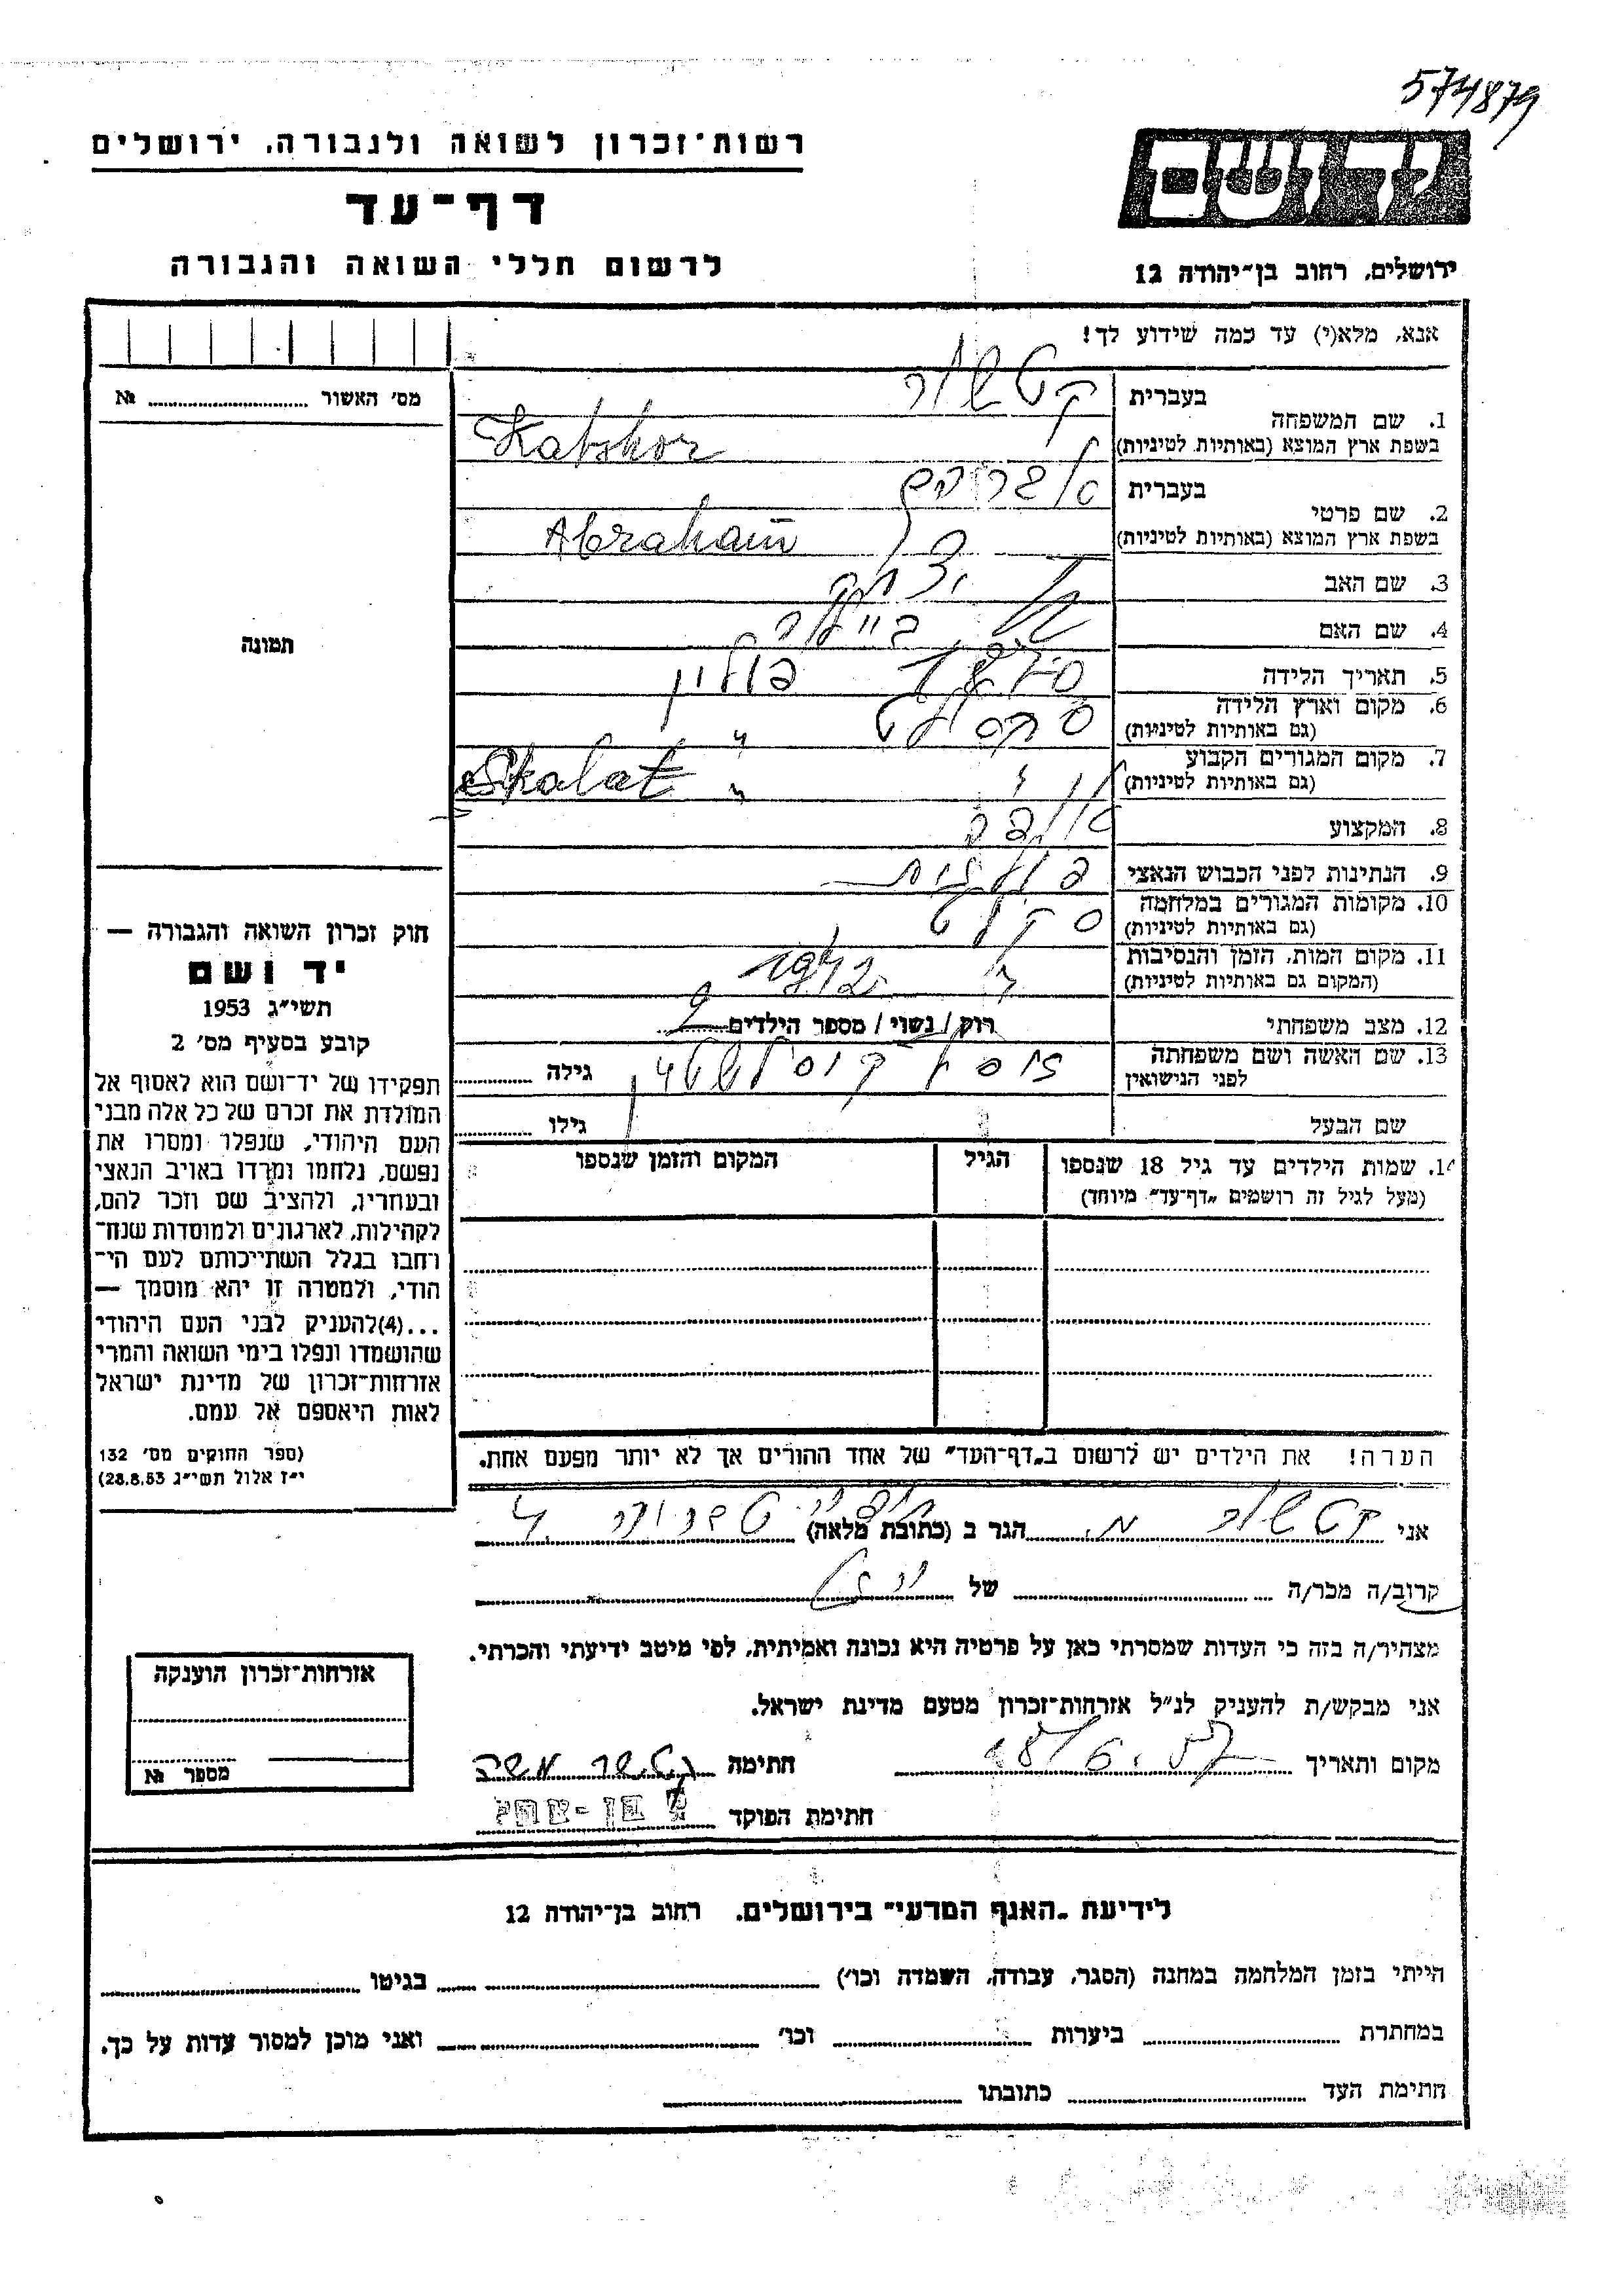 574879
רשות־זכרון לשואה ולגבורה, ירושלים
דף־עד
לרשום חללי השואה והגבורה
יד ושם
ירושלים, רחוב בן־יהודה 12
אנא, מלא(י) עד כמה שידוע לך!
מס׳ האשור № 
1. שם המשפחה
בעברית קטשור
בשפת ארץ המוצא (באותיות לטיניות) Katshor
2. שם פרטי
בעברית אברהם
בשפת ארץ המוצא (באותיות לטיניות) Abraham
3. שם האב יצחק
4. שם האם ביילה
5. תאריך הלידה
6. מקום וארץ הלידה פולין
(גם באותיות לטיניות)
7. מקום המגורים הקבוע
(גם באותיות לטיניות) Skalat
8. המקצוע
9. הנתינות לפני הכבוש הנאצי פולנית
10. מקומות המגורים במלחמה סקלט
(גם באותיות לטיניות)
11. מקום המות, הזמן והנסיבות 1942
(המקום גם באותיות לטיניות)
12. מצב משפחתי רוק / נשוי / מספר הילדים 9
13. שם האשה ושם משפחתה
לפני הנישואין
גילה
שם הבעל גילו
14. שמות הילדים עד גיל 18 שנספו הגיל המקום והזמן שנספו
(מעל לגיל זה רושמים „דף־עד״ מיוחד)
הערה! את הילדים יש לרשום ב„דף־העד״ של אחד ההורים אך לא יותר מפעם אחת.
תמונה
חוק זכרון השואה והגבורה —
יד ושם
תשי״ג 1953
קובע בסעיף מס׳ 2
תפקידו של יד־ושם הוא לאסוף אל
המולדת את זכרם של כל אלה מבני
העם היהודי, שנפלו ומסרו את
נפשם, נלחמו ומרדו באויב הנאצי
ובעוזריו, ולהציב שם וזכר להם,
לקהילות, לארגונים ולמוסדות שנח־
רחבו בגלל השתייכותם לעם הי־
הודי, ולמטרה זו יהא מוסמך —
...(4) להעניק לבני העם היהודי
שהושמדו ונפלו בימי השואה והמרי
אזרחות־זכרון של מדינת ישראל
לאות היאספם אל עמם.
(ספר החוקים מס׳ 132
י״ז אלול תשי״ג 28.8.53)
אני קטשור מ. הגר ב (כתובת מלאה) 4
קרוב/ה מכר/ה של
מצהיר/ה בזה כי העדות שמסרתי כאן על פרטיה היא נכונה ואמיתית, לפי מיטב ידיעתי והכרתי.
אני מבקש/ת להעניק לנ״ל אזרחות־זכרון מטעם מדינת ישראל.
מקום ותאריך חתימה קטשור משה
חתימת הפוקד
אזרחות־זכרון הוענקה
מספר №
לידיעת „האגף המדעי״ בירושלים, רחוב בן־יהודה 12
הייתי בזמן המלחמה במחנה (הסגר, עבודה, השמדה וכו׳) בגיטו
במחתרת ביערות וכו׳ ואני מוכן למסור עדות על כך.
חתימת העד כתובתו